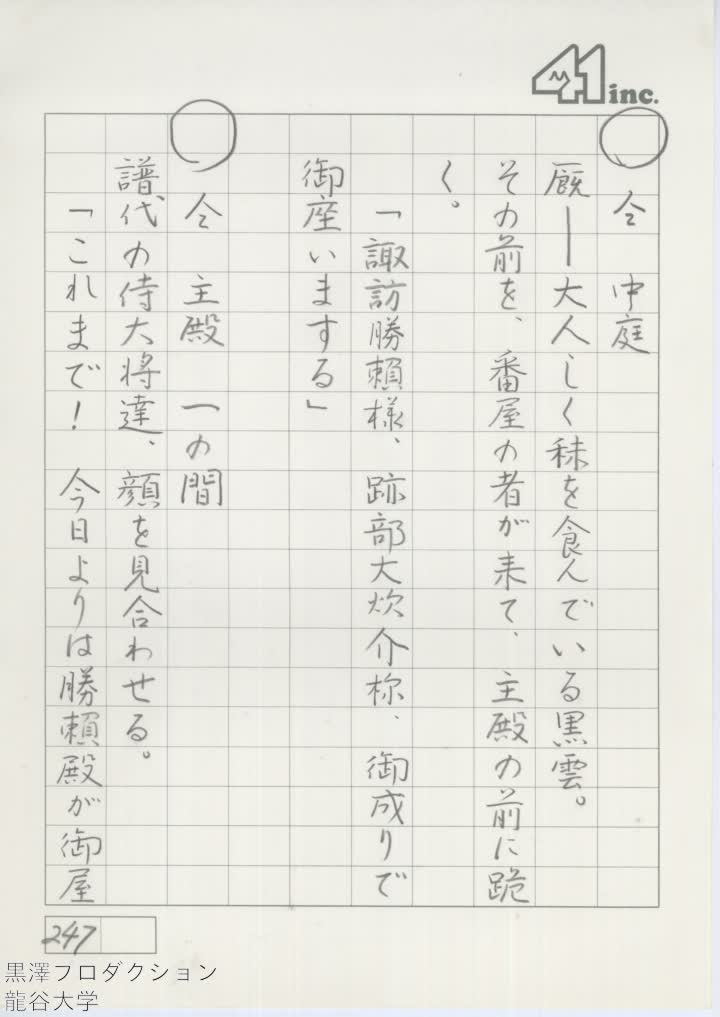 41 inc.
〇 仝 中庭
厩――大人しく秣を食んでいる黒雲。
その前を、番屋の者が来て、主殿の前に跪
く。
「諏訪勝頼様、跡部大炊介様、御成りで
御座いまする」
〇 仝 主殿 一の間
譜代の侍大将達、顔を見合わせる。
「これまで! 今日よりは勝頼殿が御屋
247
黒澤プロダクション
龍谷大学